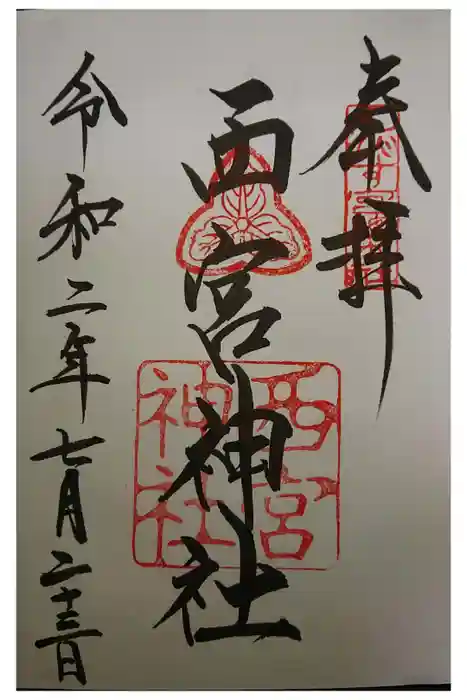 奉拝
西宮神社
西宮
神社
令和二年七月二十三日